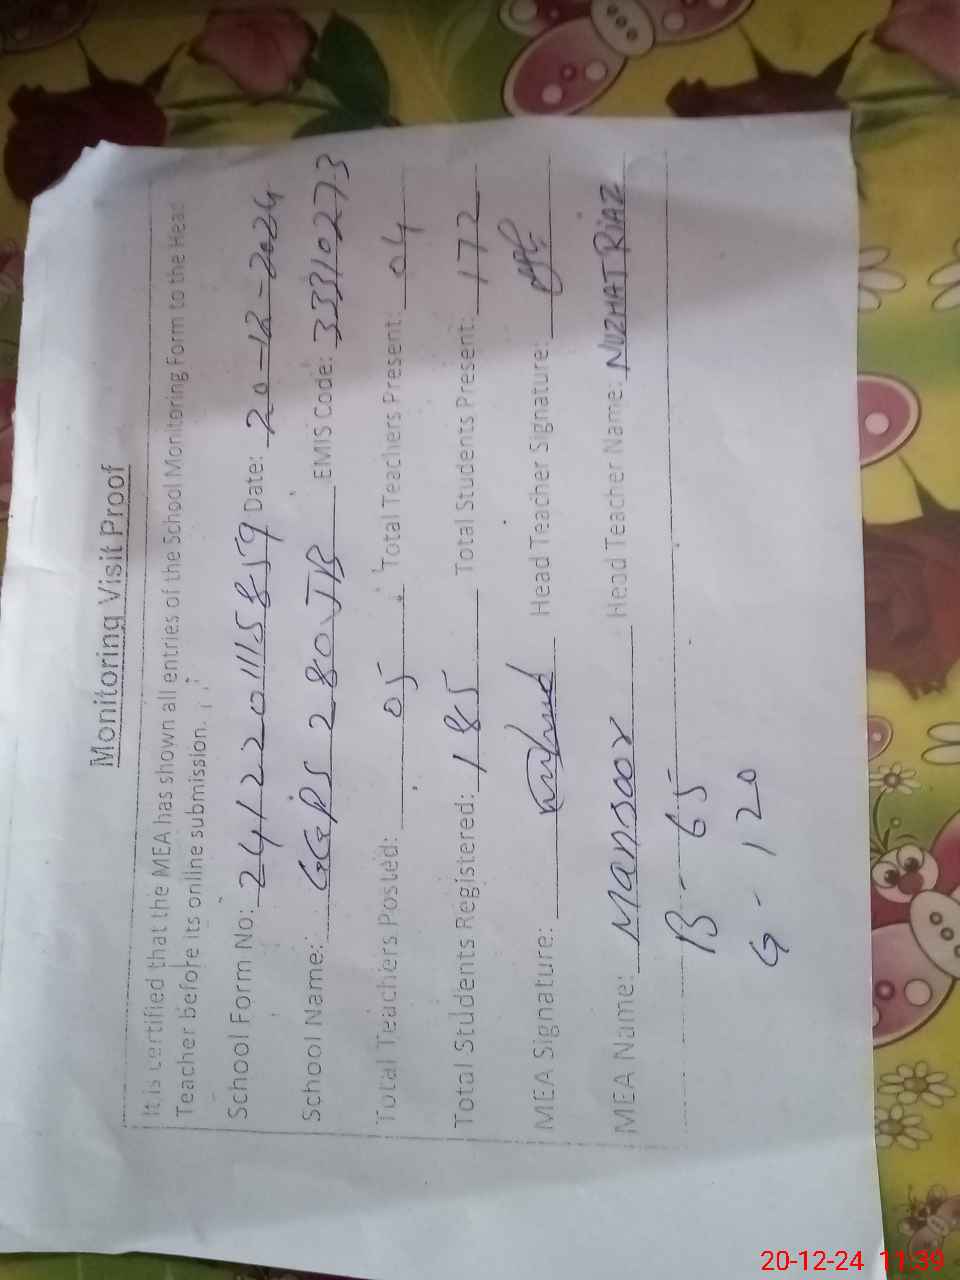 Monitoring Visit Proof
It is certified that the MEA has shown all entries of the School Monitoring Form to the Head
Teacher before its online submission.
School Form No: 2412201115859 Date: 20-12-2024
School Name: GGPS 280 JB EMIS Code: 33310273
Total Teachers Posted: 05 Total Teachers Present: 04
Total Students Registered: 185 Total Students Present: 172
MEA Signature: Head Teacher Signature:
MEA Name: Mansoor Head Teacher Name: NUZHAT RIAZ
B - 65
G - 120
20-12-24 11:39